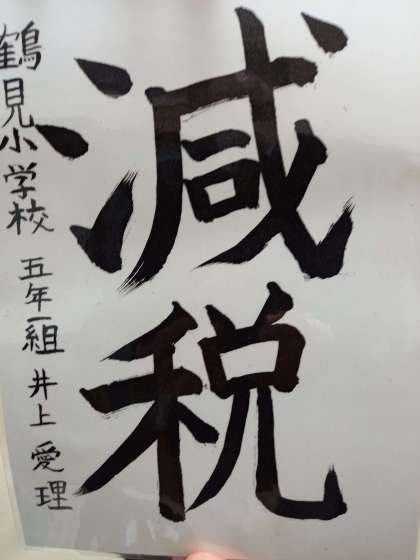 減税
鶴見小学校 五年一組 井上愛理